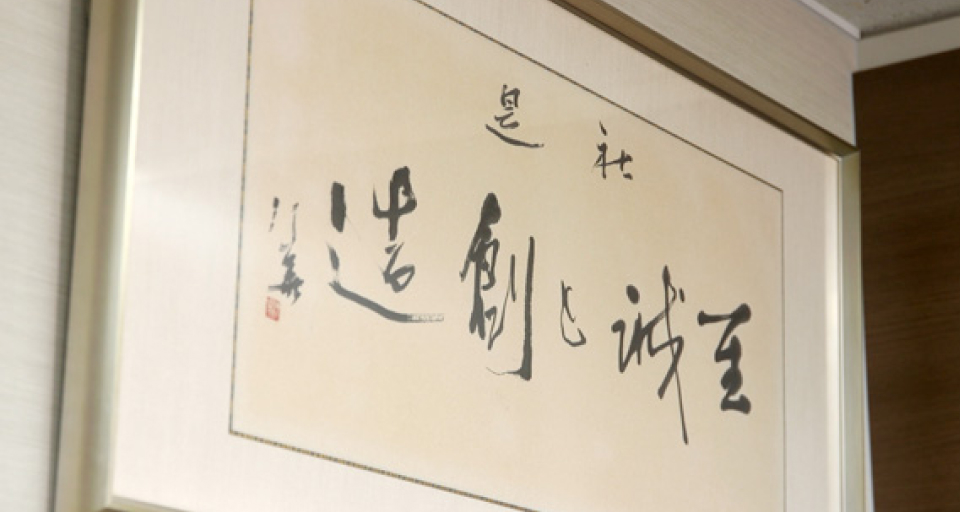 社是
至誠と創造